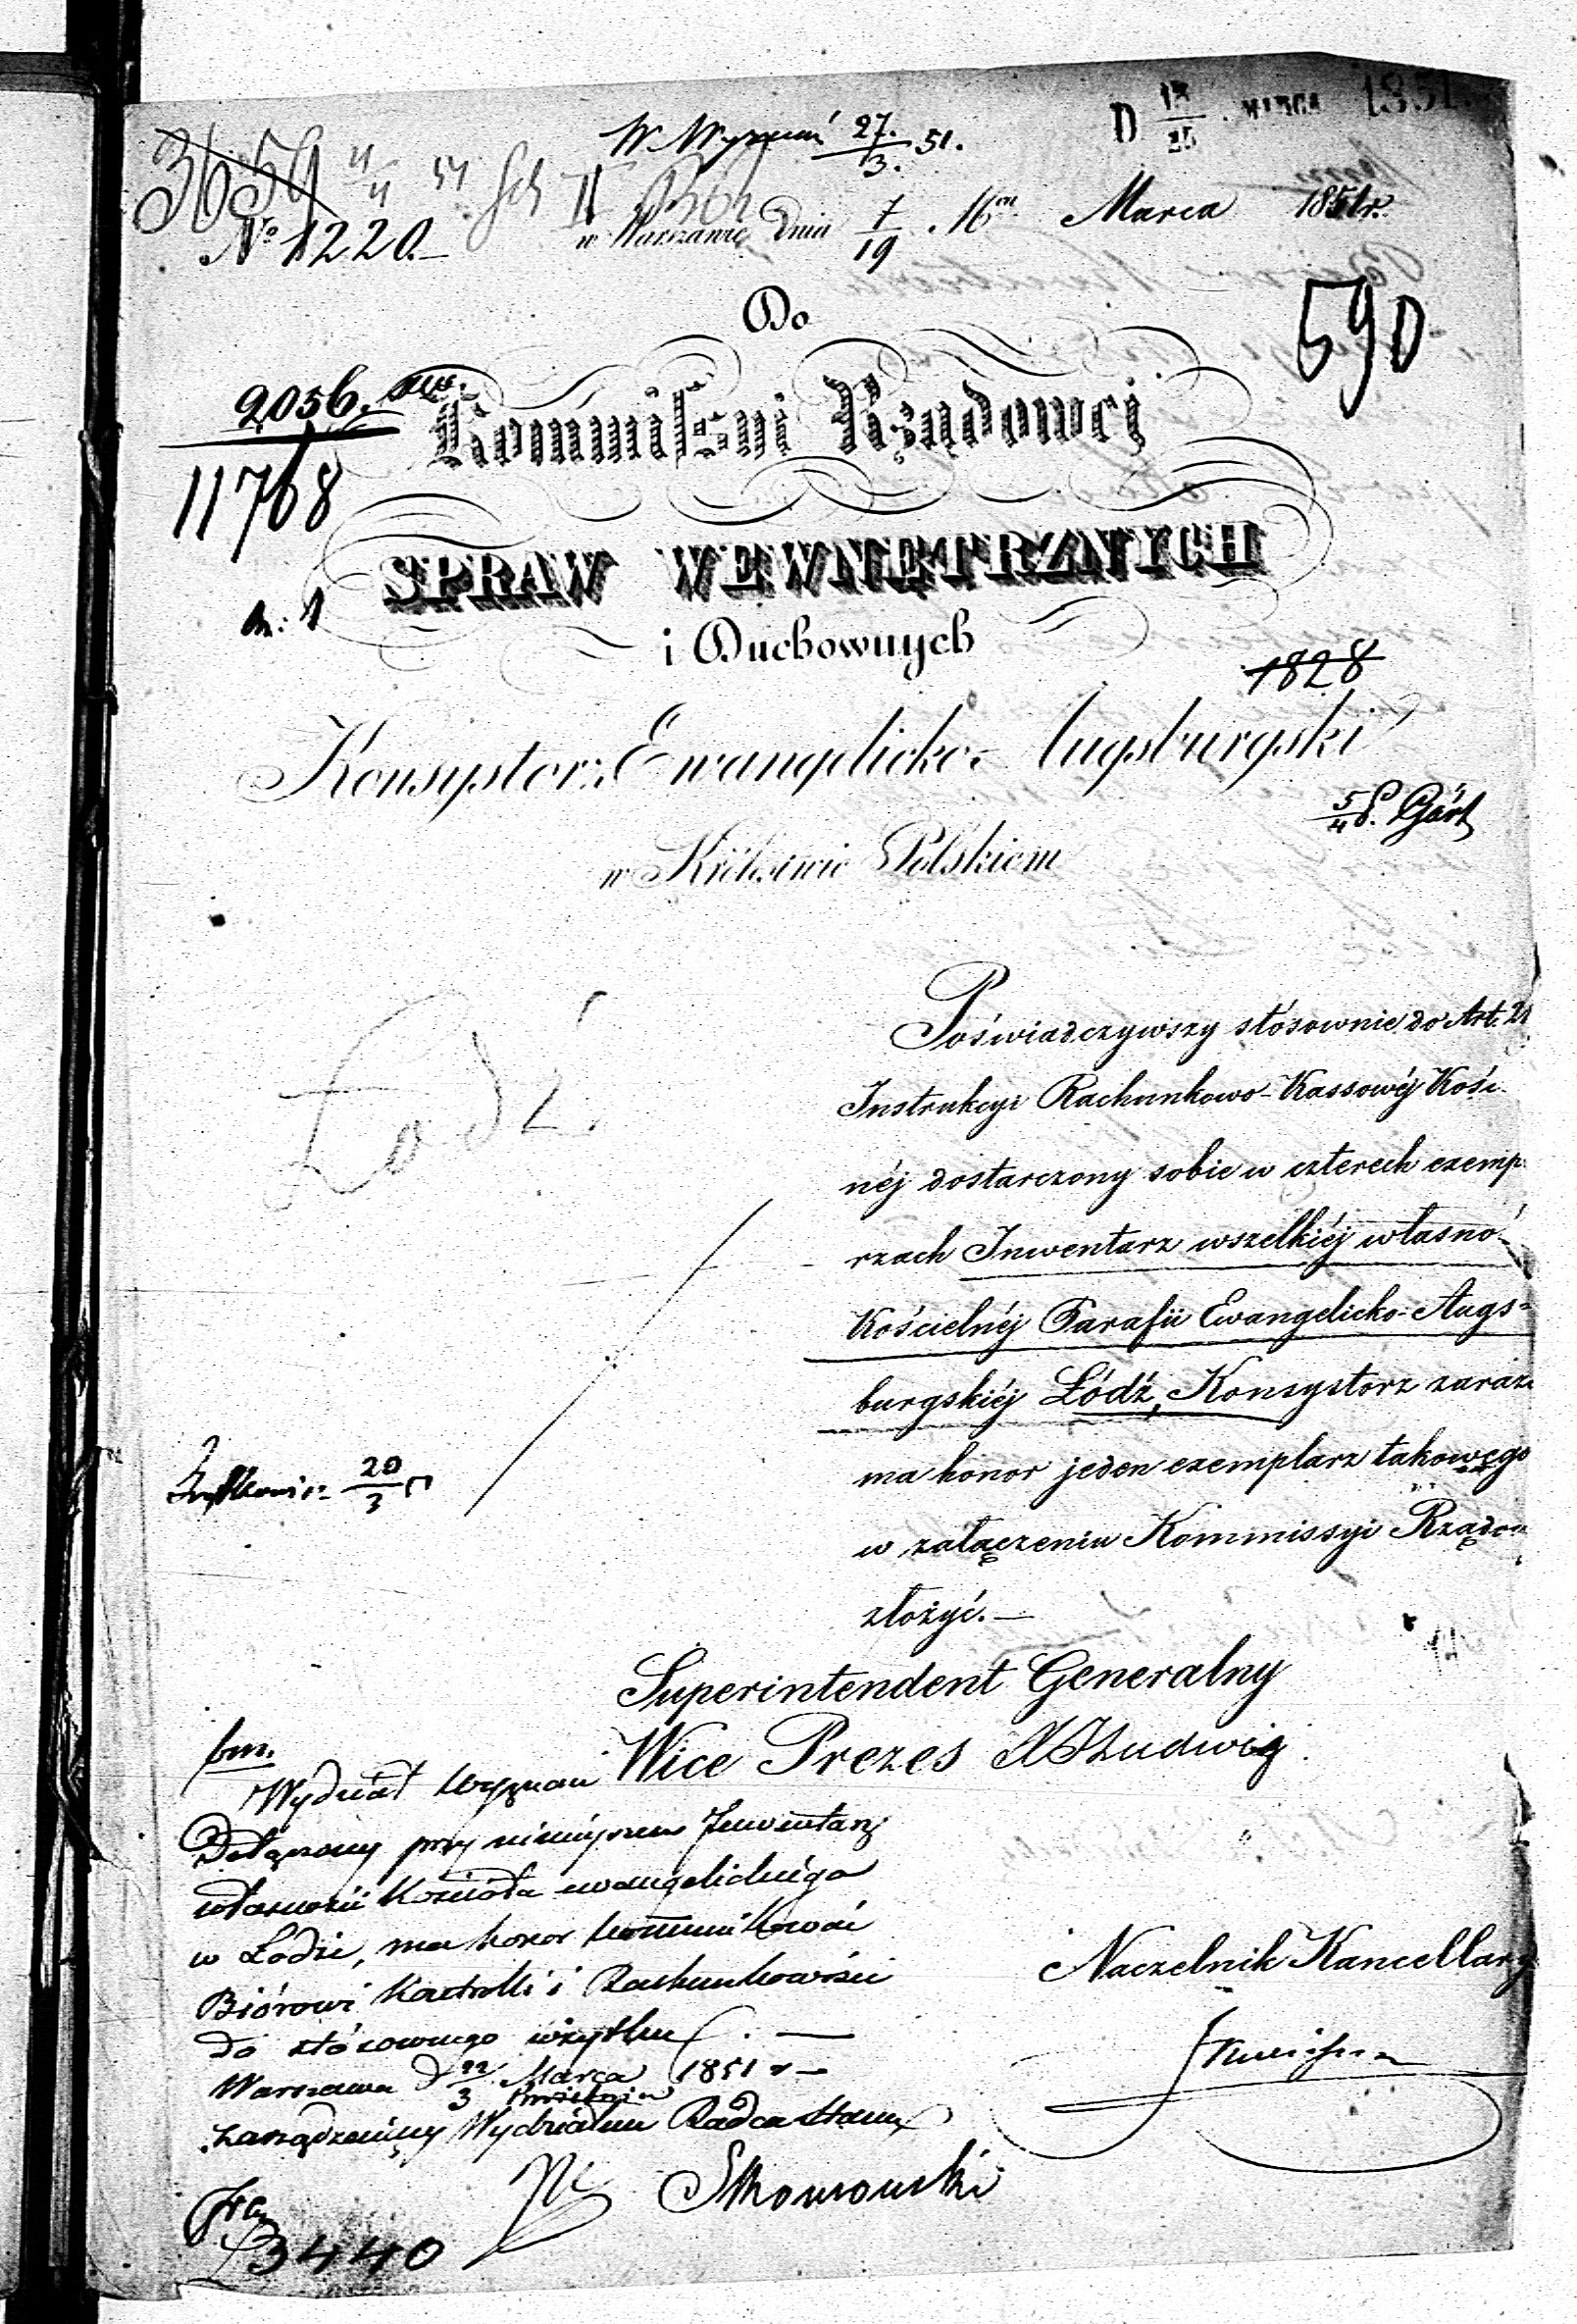 D 13/25 MARCA 1851.
W Wyznań 27./3. 51.
3659
w Warszawie Dnia 7/19 Marca 1851r.
№ 1220.
Do
590
2056.
Kommissyi Rządowej
11768
SPRAW WEWNĘTRZNYCH
i Duchownych
1828
Konsystorz Ewangelicko-Augsburgski
w Królestwie Polskiem
Łódź.
Poświadczywszy stósownie do Art. 21
Instrukcyi Rachunkowo-Kassowéj Kość
néj dostarczony sobie w czterech exemp
rzach Inwentarz wszelkiéj własno
Kościelnéj Parafii Ewangelicko-Augs=
burgskiéj Łódź, Konsystorz zaraz
ma honor jeden exemplarz takowego
20/3
w załączeniu Kommissyi Rządow
złożyć.—
Superintendent Generalny
Wice Prezes Ludwig
Wydział Wyznań
Dołączony przy niniejszem Inwentarz
własności Kościoła ewangelickiego
w Łodzi, ma honor kommunikować
Biórowi Kontrolli i Rachunkowości
do stósownego użytku. —
Warszawa d 22/3 Marca 1851 r —
zarządzający Wydziałem Radca Stanu
Naczelnik Kancellary
3440